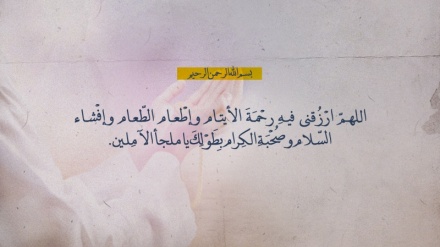 بسم الله الرحمن الرحیم
اللهمّ ارْزُقنی فیهِ رحْمَةَ الأیتامِ وإطْعامِ الطّعامِ وإفْشاءِ
السّلامِ وصُحْبَةِ الکِرامِ بِطَوْلِکَ یا ملجأ الآمِلین.